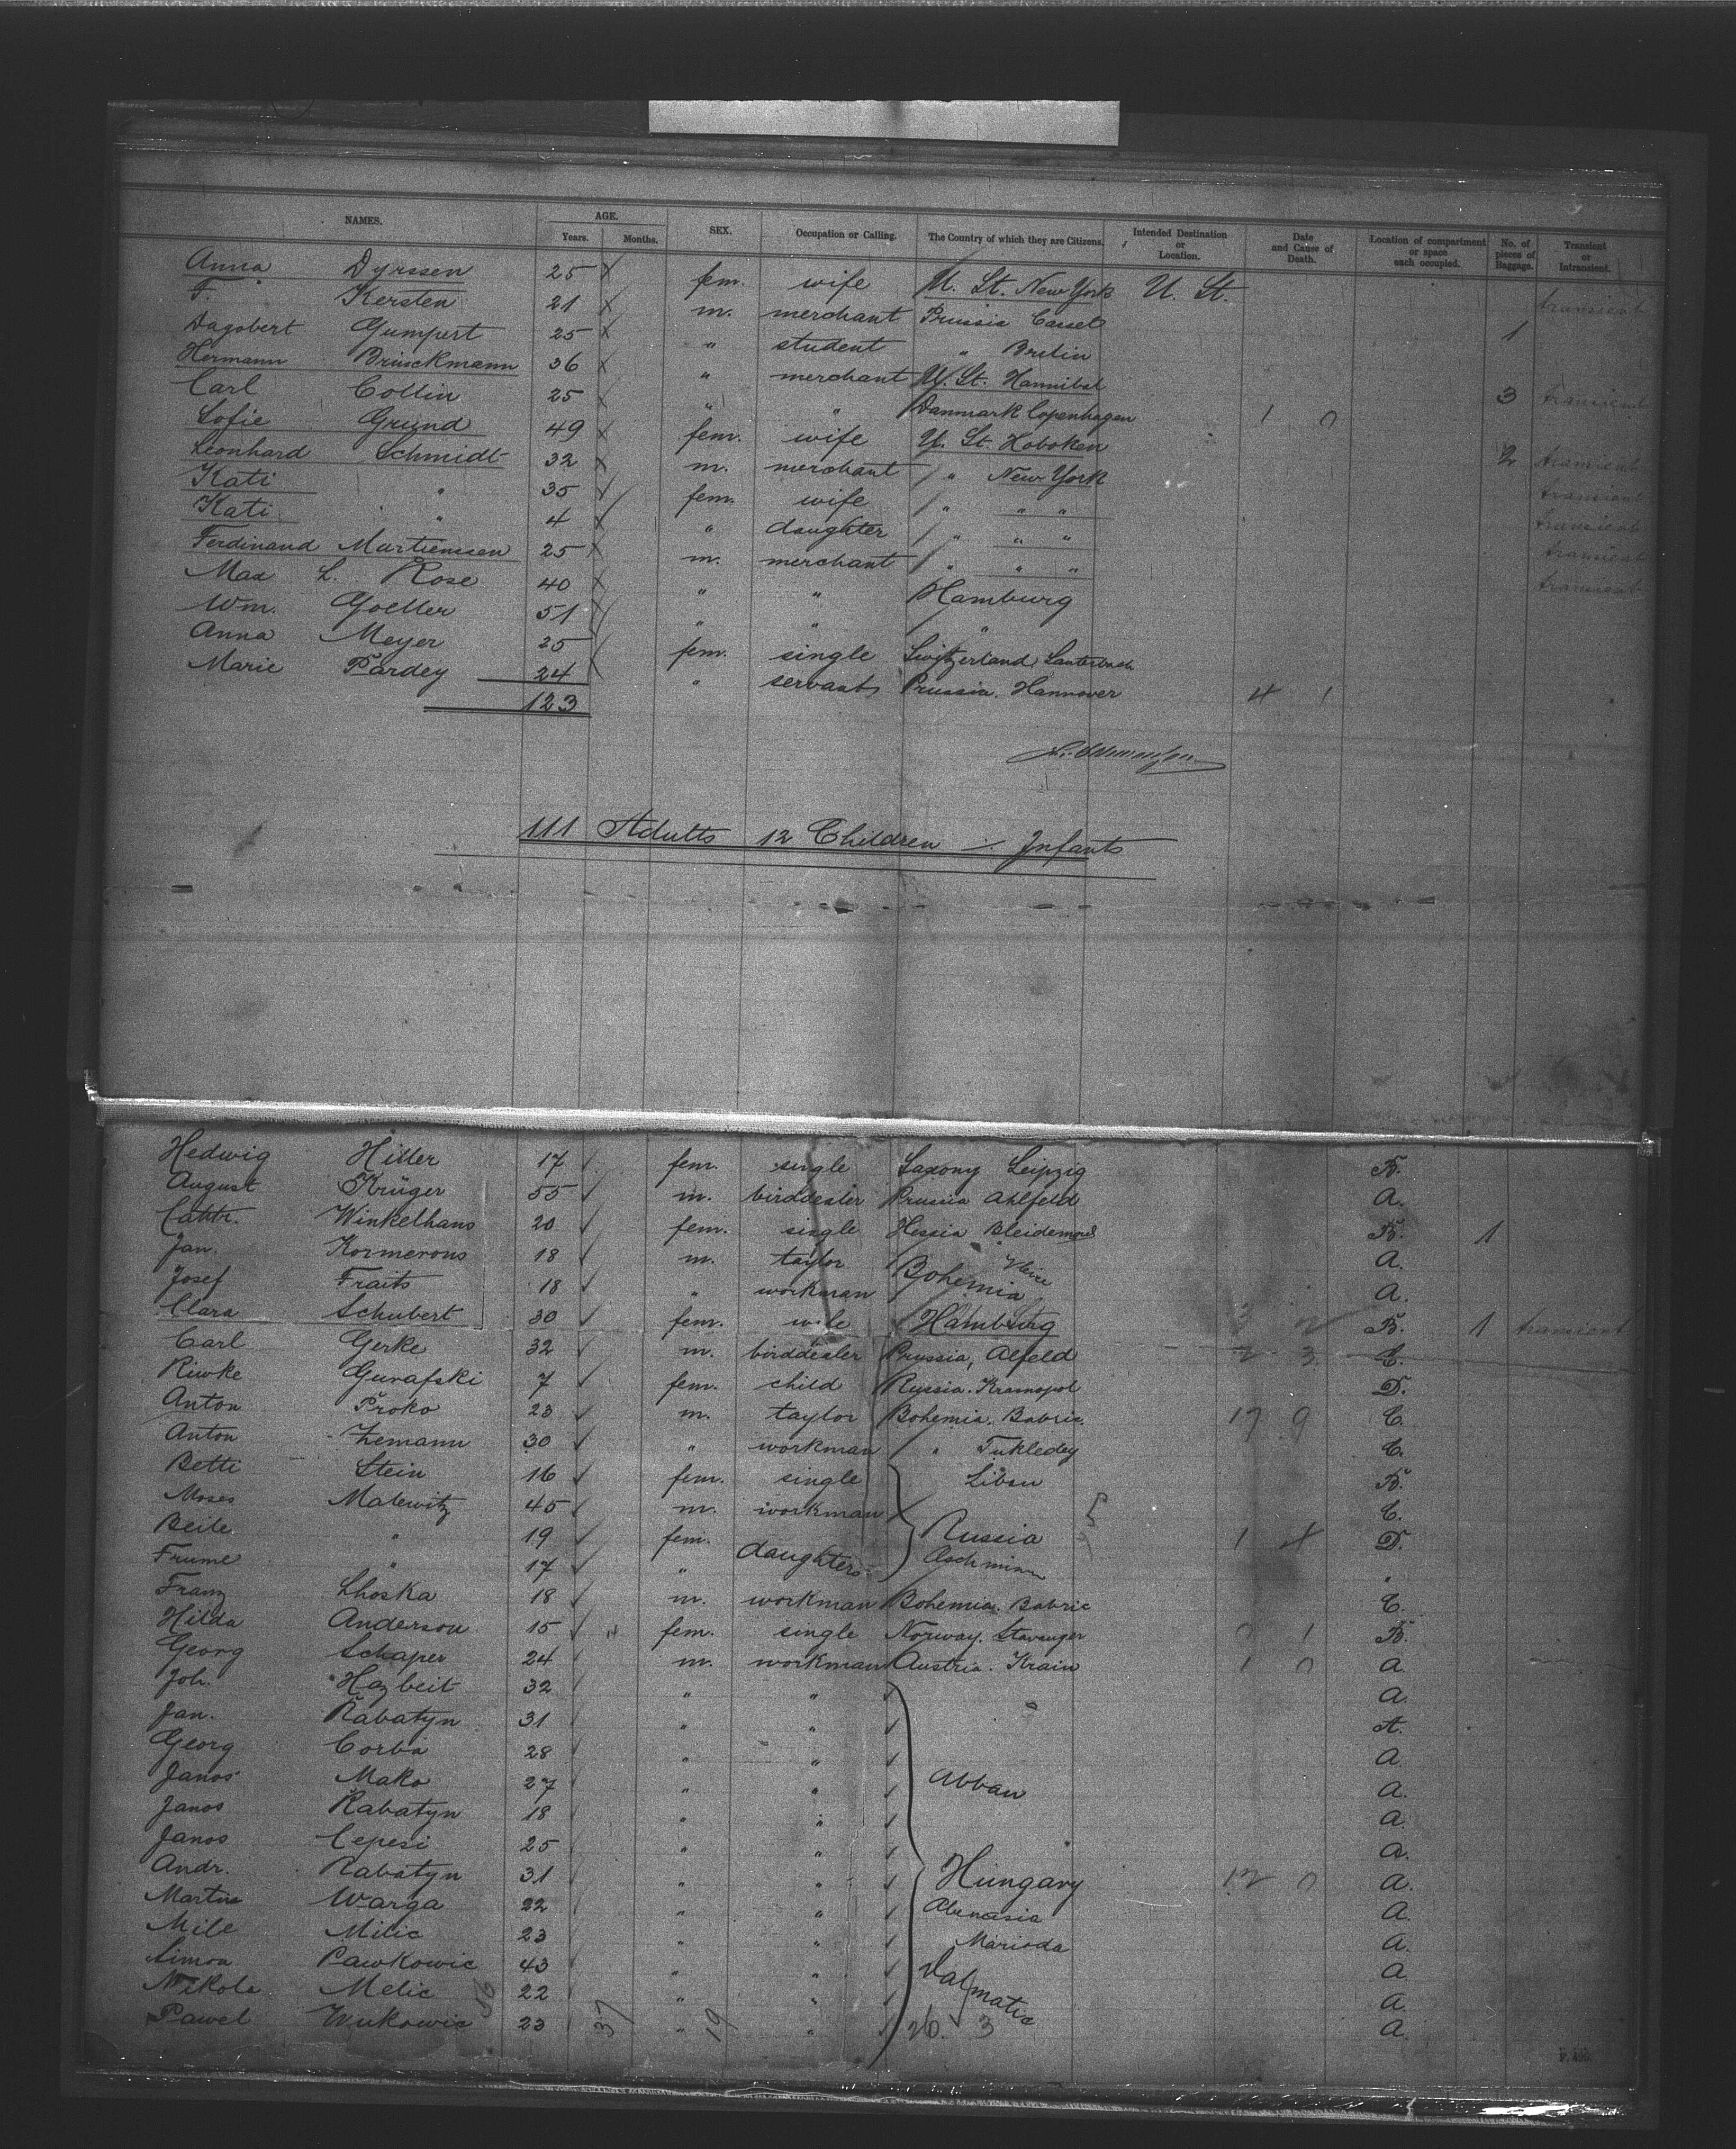 NAMES. AGE. Years. Months. SEX. Occupation or Calling. The Country of which they are Citizens. Intended Destination or Location. Date and Cause of Death. Location of compartment or space each occupied. No. of pieces of Baggage. Transient or Intransient.
Anna Dyrssen 25 fem. wife U. St. New York U. St. transient
F. Kersten 21 m. merchant Prussia Cassel
Dagobert Gumpert 25 " student " Berlin 1
Hermann Brinckmann 36 " merchant U. St. Hannibal
Carl Collin 25 " " Danmark Copenhagen 1 0 3 transient
Sofie Grund 49 fem. wife U. St. Hoboken
Leonhard Schmidt 32 m. merchant " New York 2 transient
Kati " 35 fem. wife " " " transient
Kati " 4 " daughter " " " transient
Ferdinand Martienssen 25 m. merchant " " " transient
Max L. Rose 40 " " Hamburg transient
Wm. Goeller 51 " " "
Anna Meyer 25 fem. single Switzerland, Lauterbach
Marie Pardey 24 " servant Prussia. Hannover 4 1
123
111 Adults 12 Children ./. Infants
Hedwig Hiller 17 fem. single Saxony Leipzig B.
August Krüger 55 m. birddealer Prussia Ahlfeld A.
Cathr. Winkelhaus 20 fem. single Hessia B. 1
Jan. Kormerous 18 m. taylor Bohemia A.
Josef Fraits 18 " workman A.
Clara Schubert 30 fem. wife Hamburg B. 1 transient
Carl Gerke 32 m. birddealer Prussia, Alfeld 2 3 C.
Riwke Gurafski 7 fem. child Russia. Kramopol D.
Anton Proko 23 m. taylor Bohemia. Babric 17 9 C.
Anton Zemann 30 " workman " Tukledey C.
Betti Stein 16 fem. single Libau B.
Moses Malewitz 45 m. workman C.
Beile " 19 fem. daughters Russia 1 4 D.
Frume " 17 " "
Franz Lhoska 18 m. workman Bohemia. Babric C.
Hilda Anderson 15 fem. single Norway. Stavanger 0 1 B.
Georg Schaper 24 m. workman Austria. Krain 1 0 A
Joh. Hazbeit 32 " " A.
Jan. Rabatyn 31 " " A.
Georg Corba 28 " " A
Janos Mako 27 " " Abbau A.
Janos Rabatyn 18 " " A.
Janos Cepesi 25 " " A.
Andr. Rabatyn 31 " " Hungary 12 0 A.
Martin Warga 22 " " A.
Mile Milic 23 " " Marioda A.
Simon Pawkowic 43 " " Dalmatia A
Nikola Melic 22 " " A.
Pawel Wukowic 23 37 " 19 " 26. 3 A.